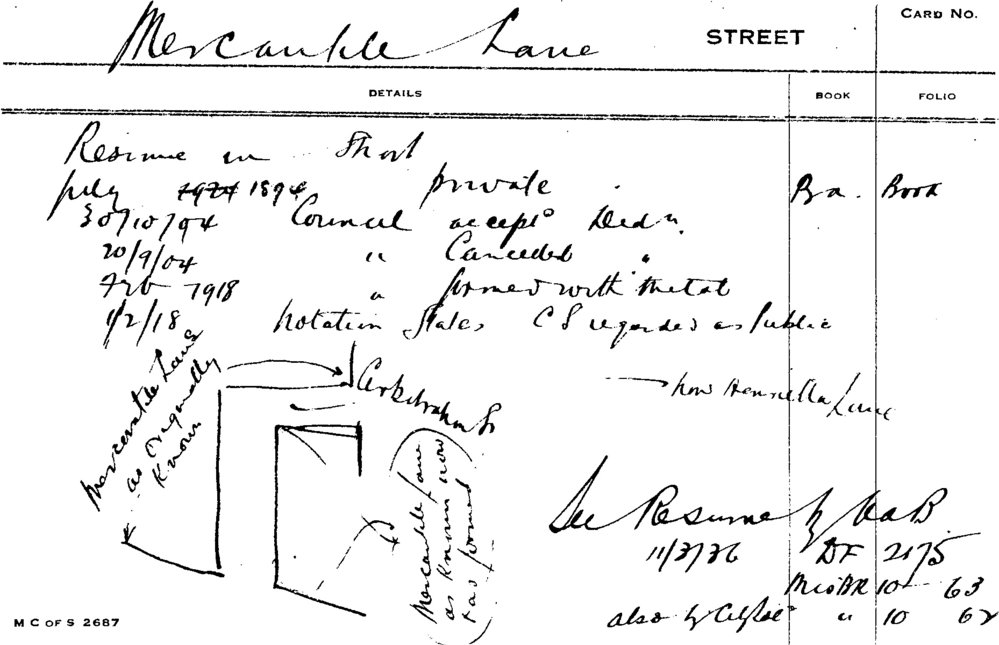 Mercantile Lane STREET
CARD NO.
DETAILS BOOK FOLIO
Resume in Short
July 1924 1894 private Ba. Book
30/10/94 Council accepts Dedn.
20/9/04 " Cancelled "
Feb 1918 " formed with metal
1/2/18 Notation States C S regarded as Public
Mercantile Lane
as originally
Known
now Henrietta Lane
Mercantile Lane
as Known now
+ as formed
See Resume by
11/3/36 DF 2175
10 63
also by " 10 62
M C OF S 2687